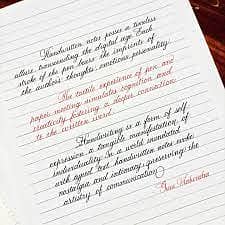 Handwritten notes posses a timeless
allure, transcending the digital age. Each
stroke of the pen bears the imprints of
the author's thoughts, emotions, personality.
The tactile experience of pen and
paper writing stimulates cognition and
creativity fostering a deeper connection
to the written word.
Handwriting is a form of self
expression, a tangible manifestation of
individuality. In a world inundated
with typed text, handwritten notes evoke
nostalgia and intimacy, preserving the
artistry of communication.